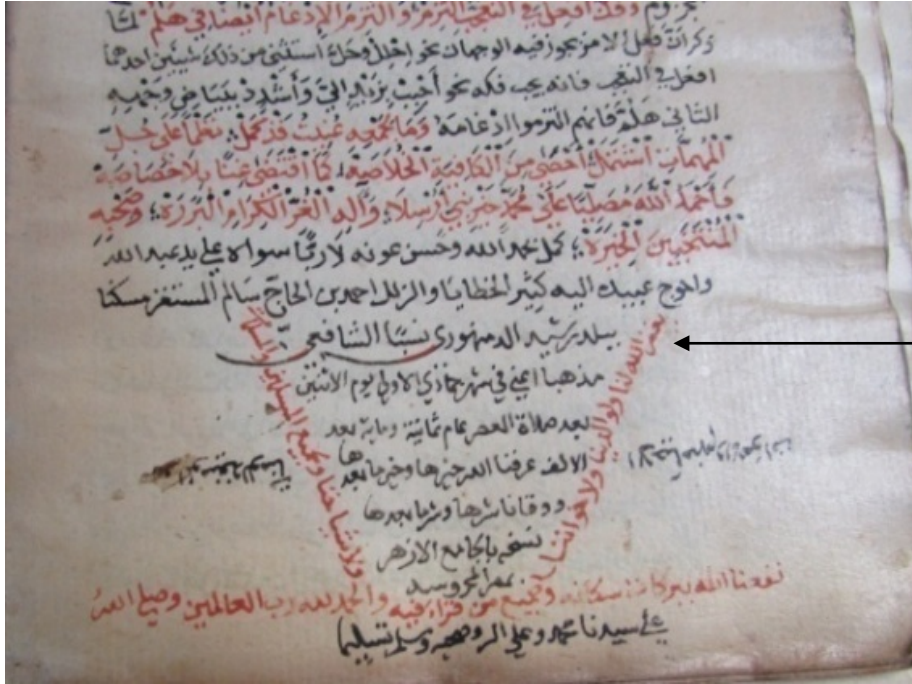 وفك افعل في التعجب التزم والتزم الادغام ايضا في هلم لما
ذكر ان فعل الامر يجوز فيه الوجهان نحو احلل وحل استثنى من ذلك شيئين احدهما
افعل في التعجب فانه يجب فكه نحو أحبب بزيد الي وأشدد ببياض وجهه
الثاني هلم فانهم التزموا ادغامه وما بجمعه عنيت قد كمل نظما على جل
المهمات اشتمل أحصى من الكافية الخلاصة كما اقتضى غنا بلا خصاصة
فأحمد الله مصليا على محمد خير نبي أرسلا وآله الغر الكرام البررة وصحبه
المنتخبين الخيرة كمل بحمد الله وحسن عونه لا ربا سواه على يد عبد الله
واحوج عبيده اليه كثير الخطايا والزلل احمد بن الحاج سالم المستغز مسكنا
ببلد رشيد الدمنهوري نسبا الشافعي
مذهبا في شهر جمادي الاولى يوم الاثنين
بعد صلاة العصر عام ثمانية وماية بعد
الالف عرفنا الله خيرها وخير ما بعدها
ووقانا شرها وشر ما بعدها
نسخه بالجامع الازهر
بمصر المحروسه
يغفر الله لنا ولوالدينا ولاخواننا
ولاشياخنا ولجميع المسلمين والمسلمات
نفعنا الله ببركات سكانه ولجميع من قراء فيه والحمد لله رب العالمين وصلى الله
على سيدنا محمد وعلى اله وصحبه وسلم تسليما